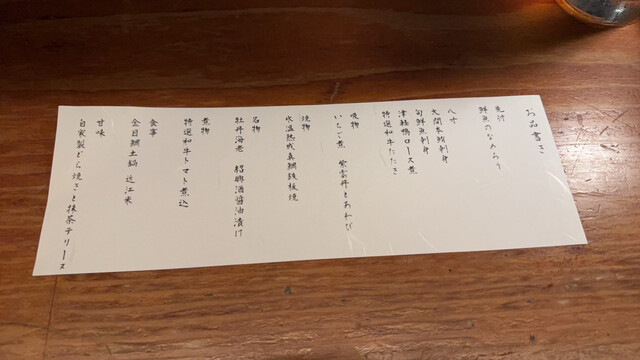 お品書き
先付
鮮魚のなめろう
八寸
大間本鮪刺身
旬鮮魚刺身
津軽鴨ロース煮
特選和牛たたき
焼物
いちご煮 紫雲丹とあわび
焼物
氷温熟成真鯛鉄板焼
名物
牡丹海老 紹興酒醤油漬け
煮物
特選和牛トマト煮込
食事
金目鯛土鍋 近江米
甘味
自家製どら焼きと抹茶テリーヌ